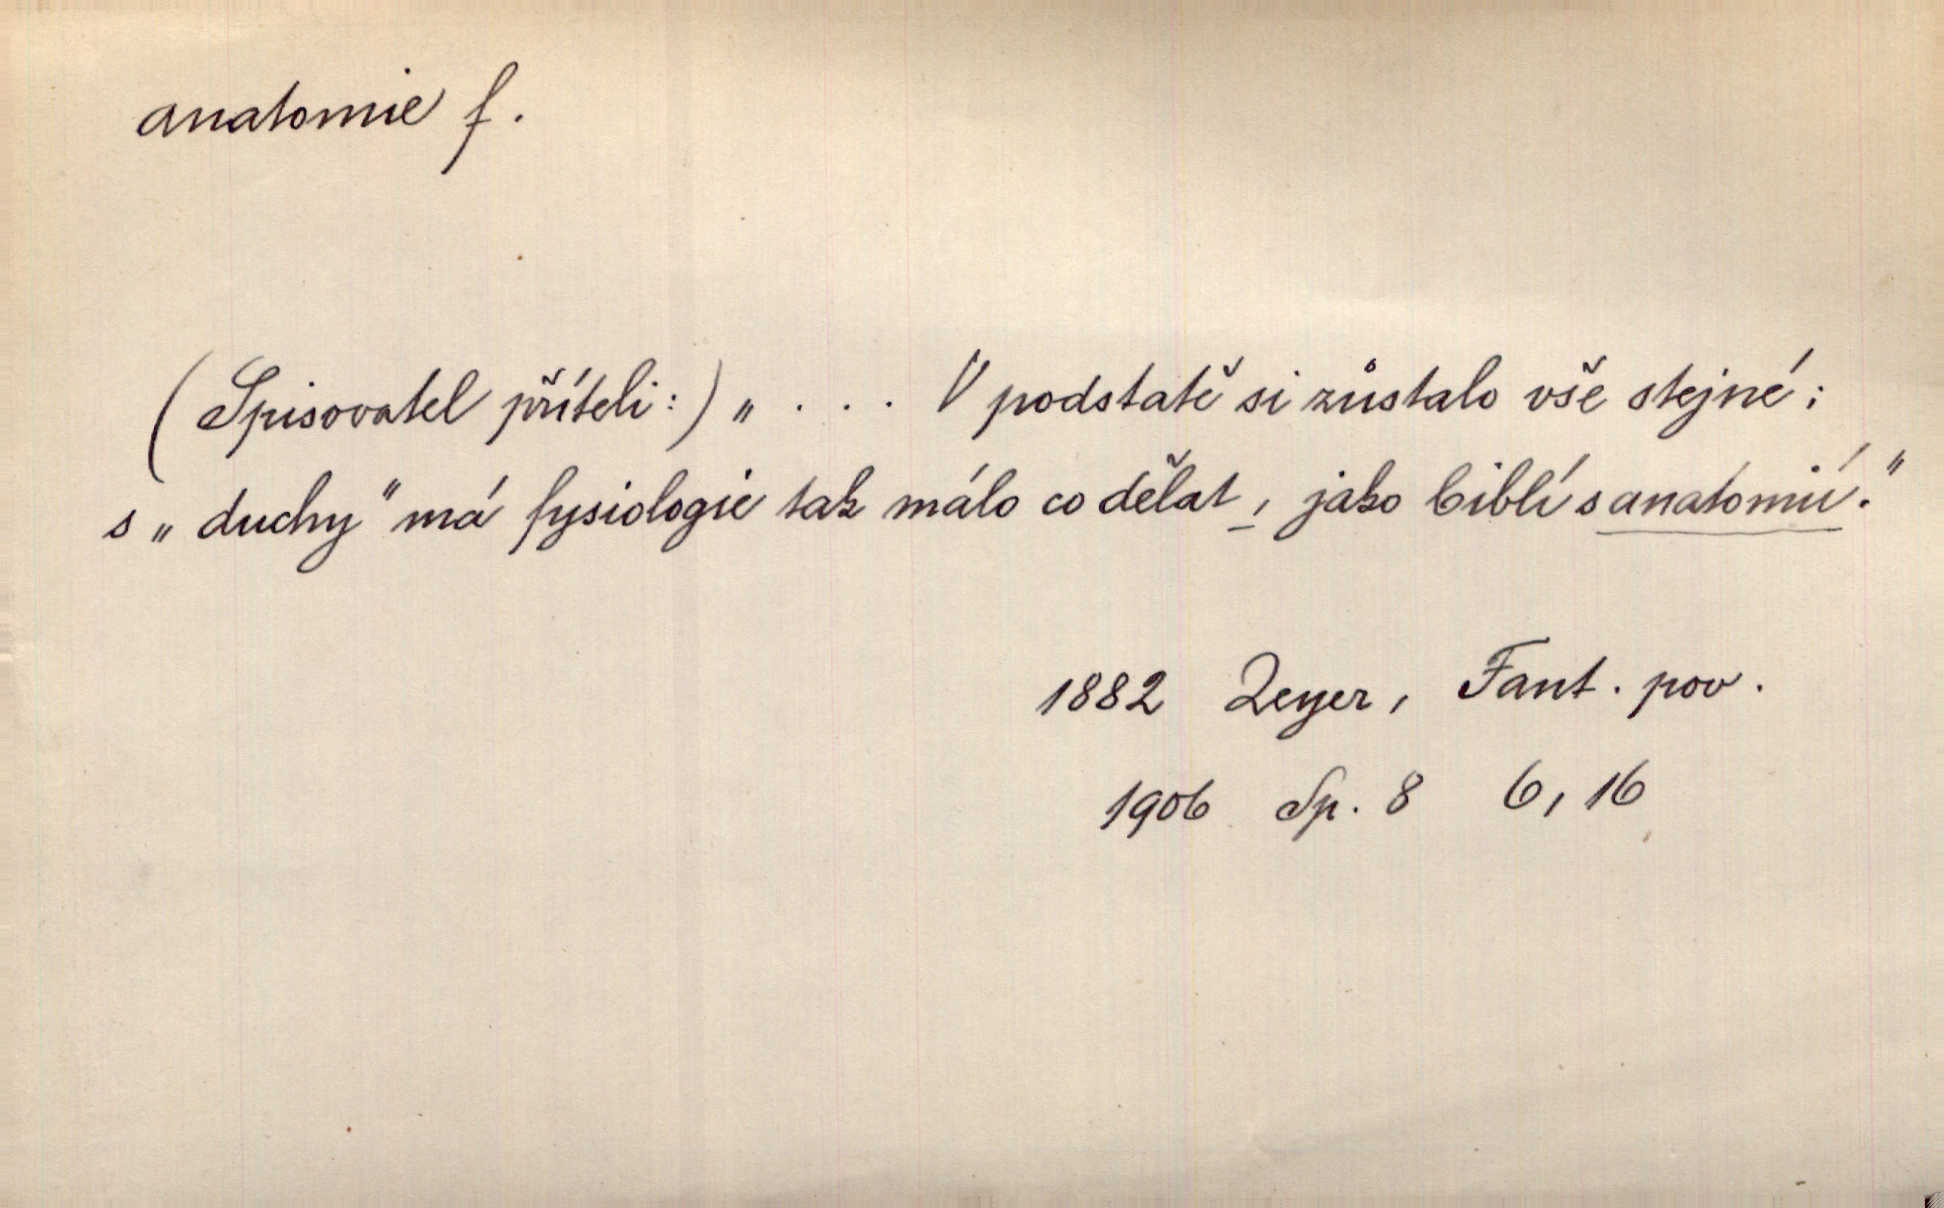 anatomie f.
(Spisovatel příteli:) „ . . . V podstatě si zůstalo vše stejné;
s „duchy“ má fysiologie tak málo co dělat, jako biblí s anatomií.“
1882 Zeyer, Fant. pov.
1906 Sp. 8 6, 16